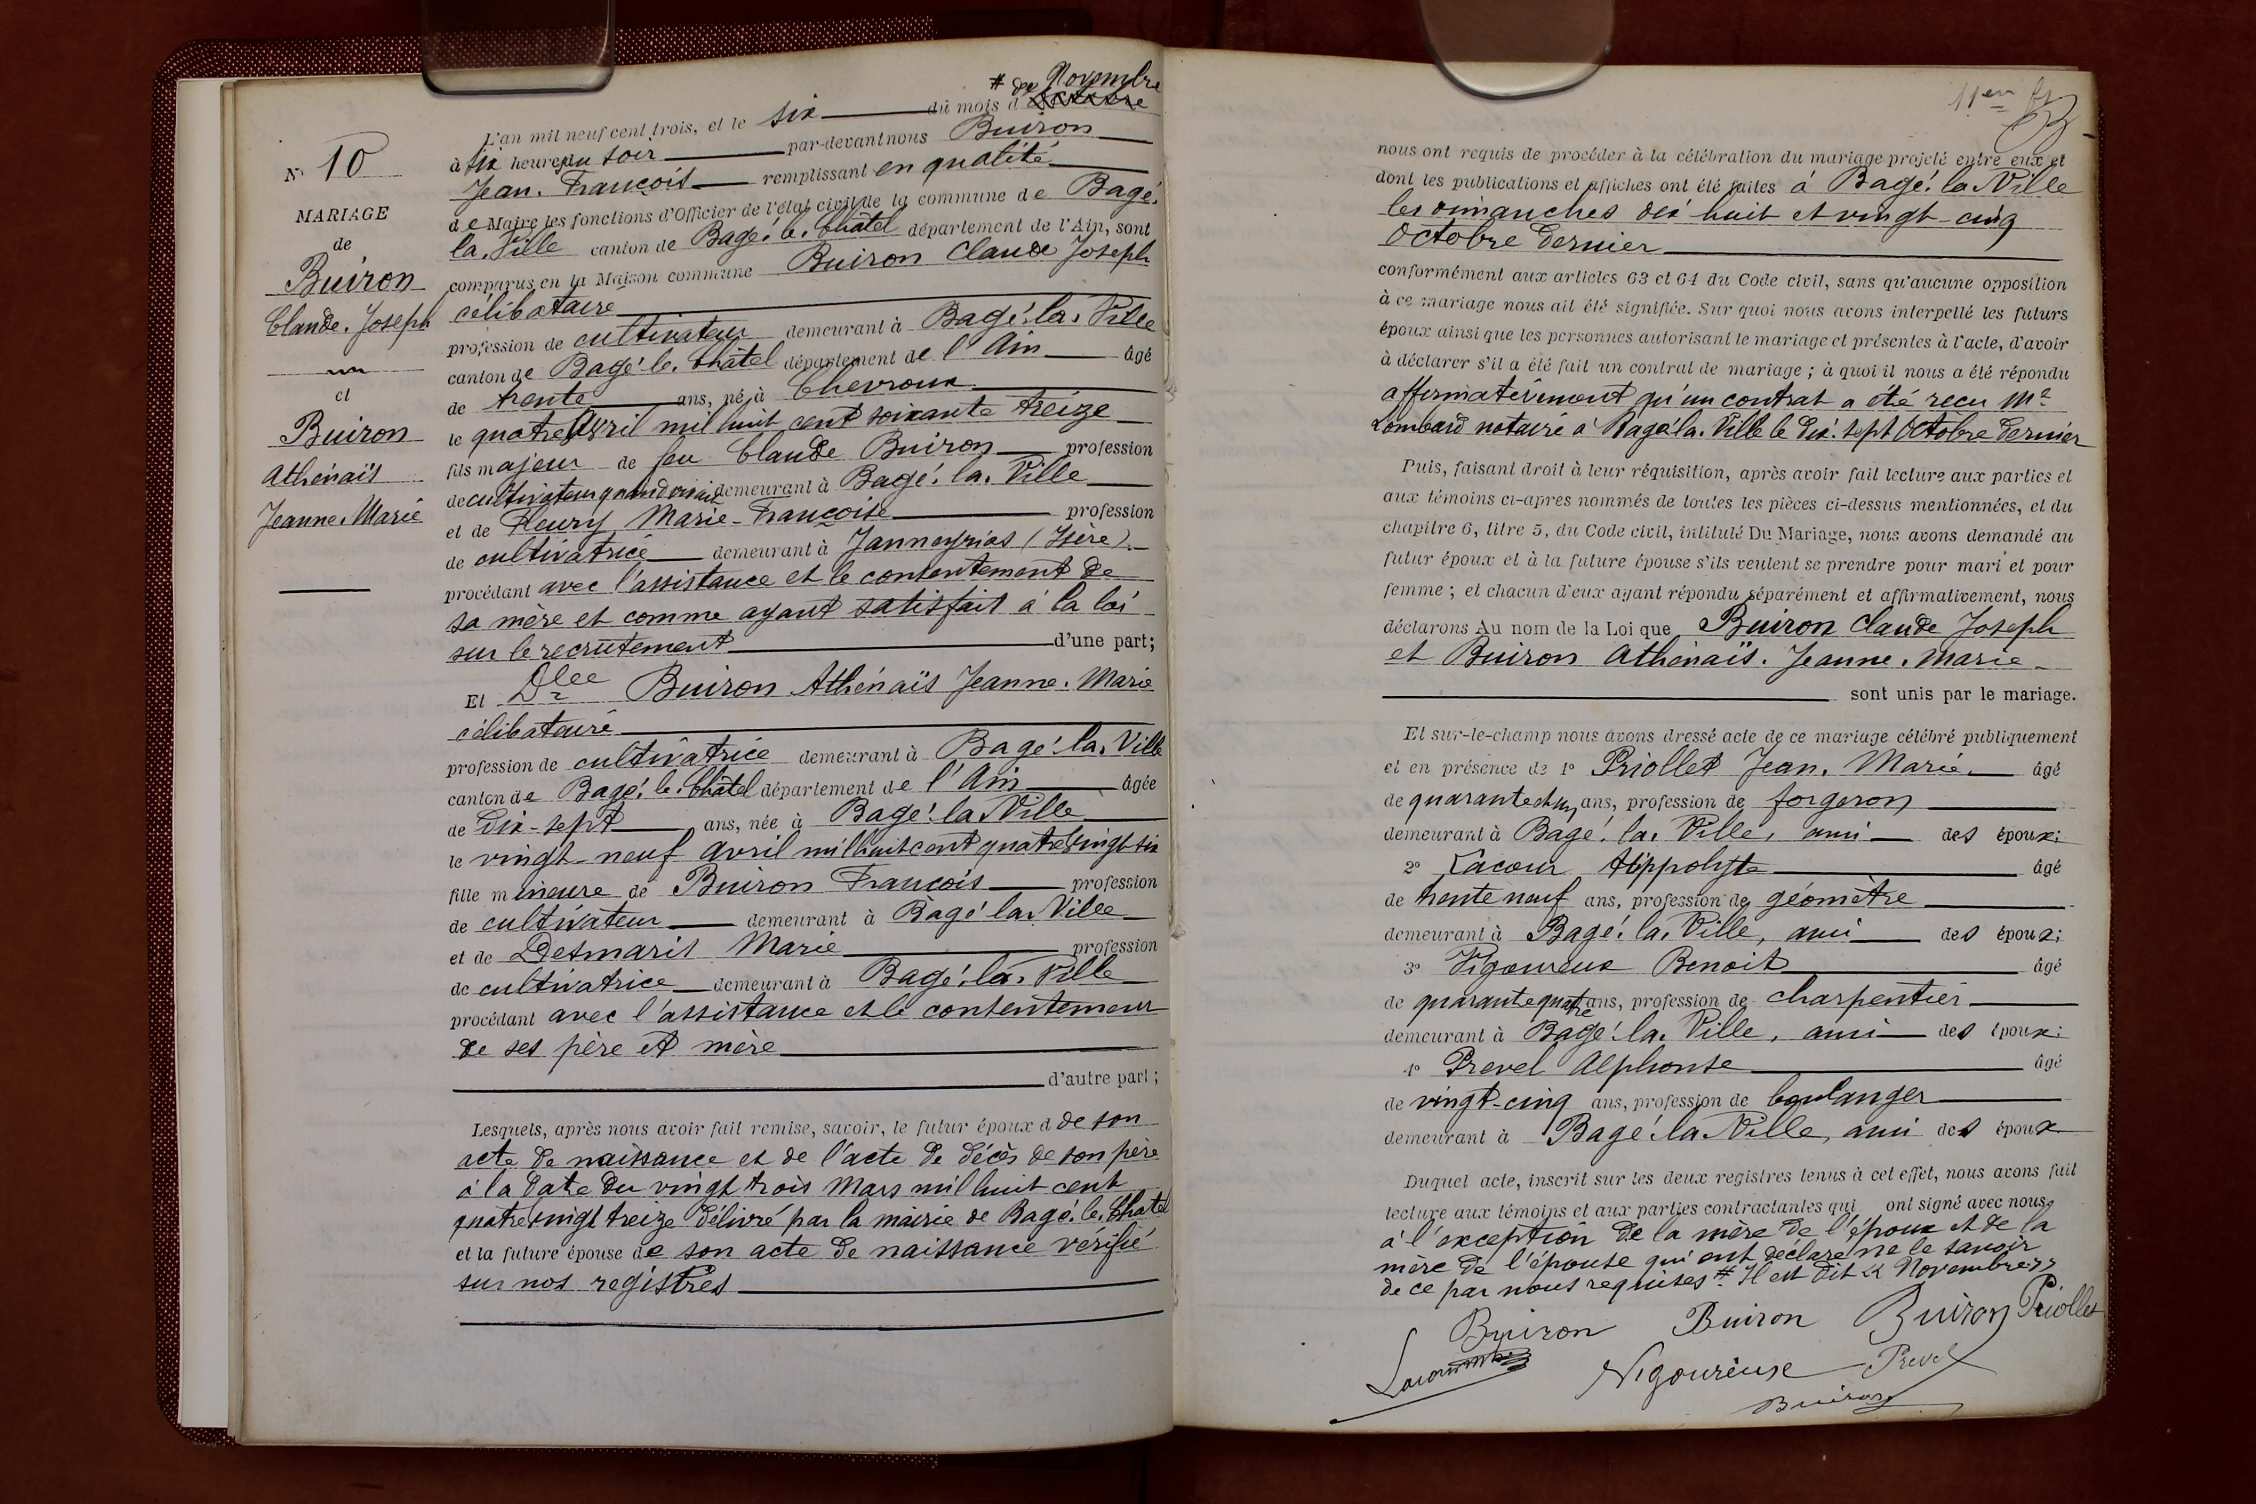 # de Novembre
L'an mil neuf cent trois, et le six du mois d'octobre
à six heures du soir par-devant nous Buiron
Jean. François remplissant en qualité
de Maire les fonctions d'Officier de l'état civil de la commune de Bagé.
la. Ville canton de Bagé. le. Châtel département de l'Ain, sont
comparus en la Maison commune Buiron Claude Joseph
célibataire
profession de cultivateur demeurant à Bagé. la. Ville
canton de Bagé. le. Châtel département de l'Ain âgé
de trente ans, né à Chevroux
le quatre Avril mil huit cent soixante treize
fils majeur de feu Claude Buiron profession
de cultivateur quand vivait demeurant à Bagé. la. Ville
et de Fleury Marie-Françoise profession
de cultivatrice demeurant à Janneyrias (Isère).
procédant avec l'assistance et le consentement de
sa mère et comme ayant satisfait à la loi
sur le recrutement d'une part;
Et Dlle Buiron Athénaïs Jeanne. Marie
célibataire
profession de cultivatrice demeurant à Bagé. la. Ville
canton de Bagé. le. Châtel département de l'Ain âgée
de dix-sept ans, née à Bagé. la Ville
le vingt-neuf avril mil huit cent quatre vingt six
fille mineure de Buiron François profession
de cultivateur demeurant à Bagé la. Ville
et de Desmaris Marie profession
de cultivatrice demeurant à Bagé. la. Ville
procédant avec l'assistance et le consentement
de ses père et mère
d'autre part;
Lesquels, après nous avoir fait remise, savoir, le futur époux d de son
acte de naissance et de l'acte de décès de son père
à la date du vingt trois Mars mil huit cent
quatre vingt treize délivré par la mairie de Bagé. le. Chatel
et la future épouse de son acte de naissance vérifié
sur nos registres
N° 10
MARIAGE
de
Buiron
Claude. Joseph
et
Buiron
Athénaïs
Jeanne. Marie
nous ont requis de procéder à la célébration du mariage projeté entre eux et
dont les publications et affiches ont été faites à Bagé. la Ville
les dimanches dix huit et vingt-cinq
Octobre dernier
conformément aux articles 63 et 64 du Code civil, sans qu'aucune opposition
à ce mariage nous ait été signifiée. Sur quoi nous avons interpellé les futurs
époux ainsi que les personnes autorisant le mariage et présentes à l'acte, d'avoir
à déclarer s'il a été fait un contrat de mariage; à quoi il nous a été répondu
affirmativement qu'un contrat a été reçu Me
Lombard notaire à Bagé la. Ville le dix. sept Octobre dernier
Puis, faisant droit à leur réquisition, après avoir fait lecture aux parties et
aux témoins ci-après nommés de toutes les pièces ci-dessus mentionnées, et du
chapitre 6, titre 5, du Code civil, intitulé Du Mariage, nous avons demandé au
futur époux et à la future épouse s'ils veulent se prendre pour mari et pour
femme; et chacun d'eux ayant répondu séparément et affirmativement, nous
déclarons Au nom de la Loi que Buiron Claude Joseph
et Buiron Athénaïs. Jeanne. Marie
sont unis par le mariage.
Et sur-le-champ nous avons dressé acte de ce mariage célébré publiquement
et en présence de 1° Priollet Jean. Marie. âgé
de quarante et un ans, profession de forgeron
demeurant à Bagé. la. Ville, ami des époux;
2° Lacour Hippolyte âgé
de trente neuf ans, profession de géomètre
demeurant à Bagé. la. Ville, ami des époux;
3° Vigoureux Benoit âgé
de quarante quatre ans, profession de charpentier
demeurant à Bagé. la. Ville, ami des époux;
4° Prevel Alphonse âgé
de vingt-cinq ans, profession de boulanger
demeurant à Bagé. la Ville, ami des époux
Duquel acte, inscrit sur les deux registres tenus à cet effet, nous avons fait
lecture aux témoins et aux parties contractantes qui ont signé avec nous
à l'exception de la mère de l'époux et de la
mère de l'épouse qui ont déclaré ne le savoir
de ce par nous requises. # Il est dit << Novembre >>
Buiron Buiron Buiron Priollet
Lacour Vigoureux Prevel
Buiron